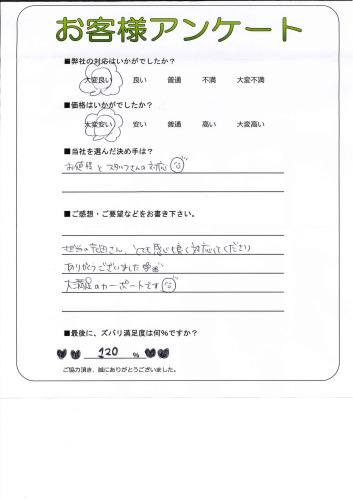 お客様アンケート
■弊社の対応はいかがでしたか？
大変良い 良い 普通 不満 大変不満
■価格はいかがでしたか？
大変安い 安い 普通 高い 大変高い
■当社を選んだ決め手は？
お値段と スタッフさんの対応
■ご感想・ご要望などをお書き下さい。
担当の さん、とても感じも良く対応してくださり
ありがとうございました
大満足のカーポートです
■最後に、ズバリ満足度は何%ですか？
120 %
ご協力頂き、誠にありがとうございました。